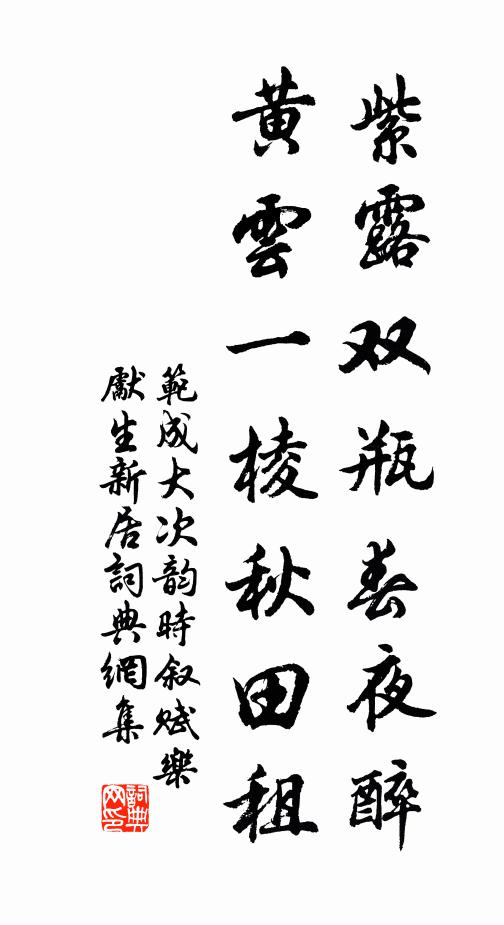 紫露双瓶春夜醉
黄雲一棱秋田租
範成大次韵時叙赋樂
獻生新居詞典網集
詞典网印